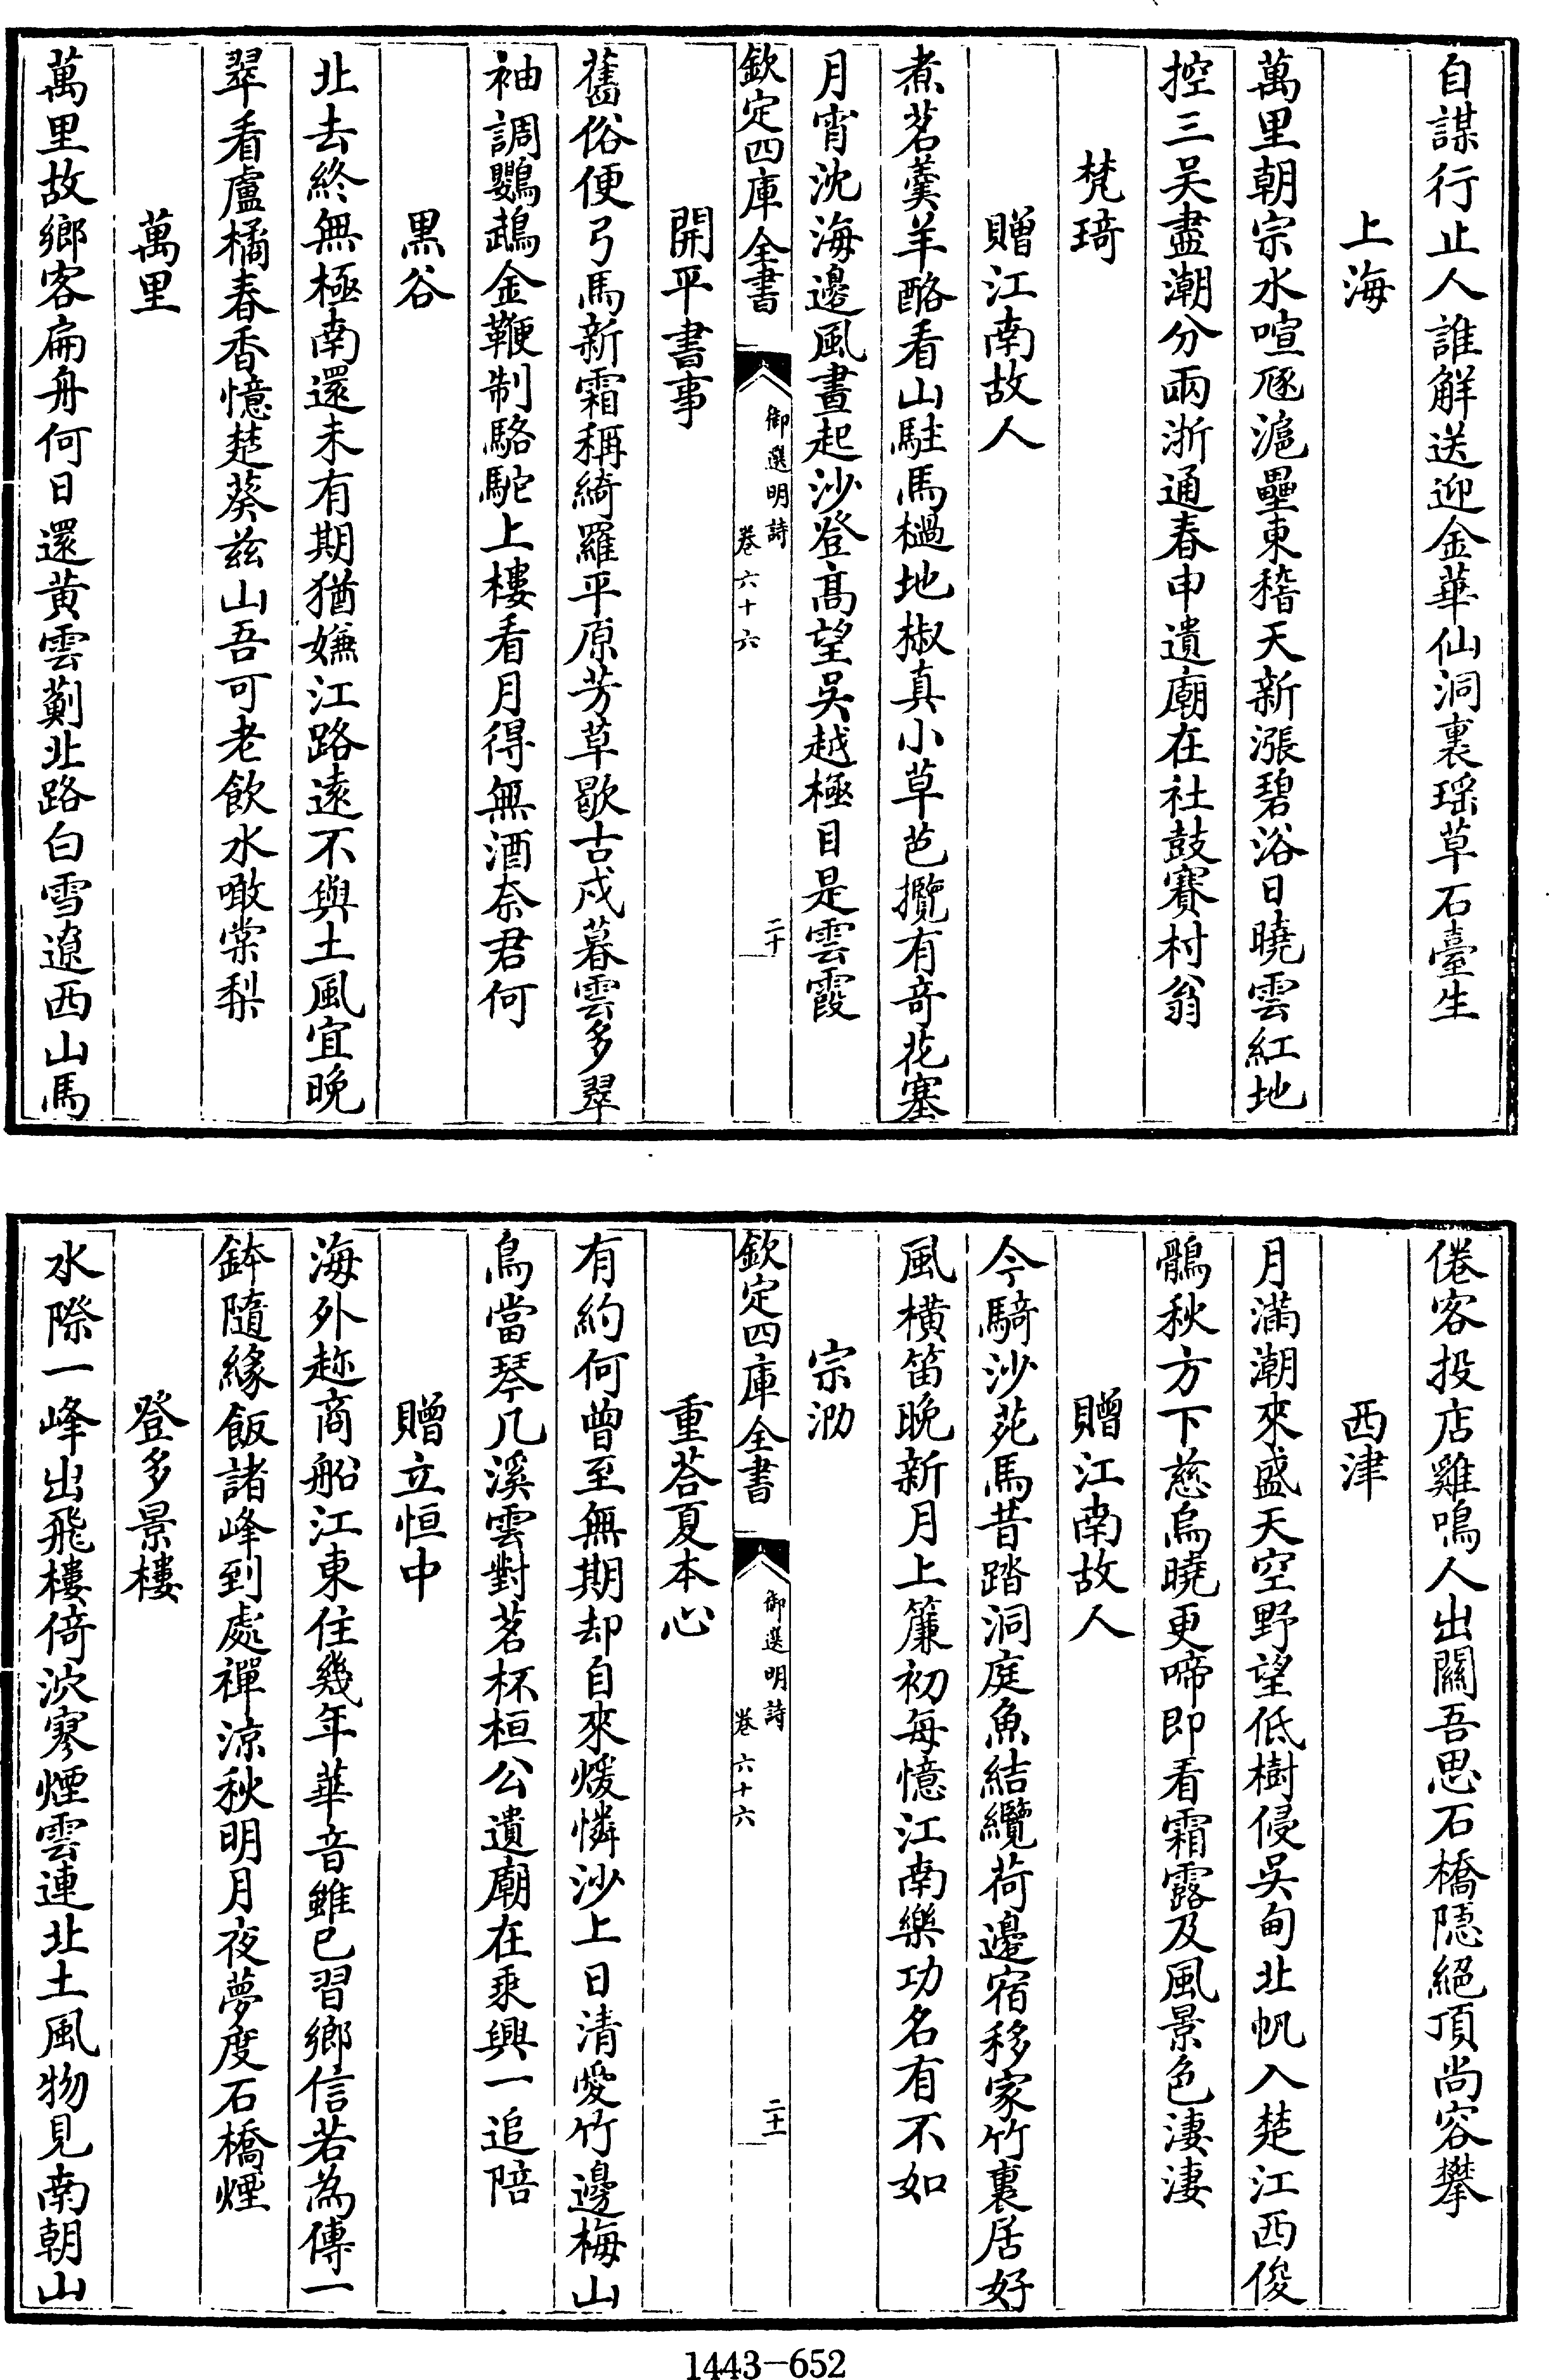 自謀行止人誰解送迎金華仙洞裏瑶草石臺生
上海
萬里朝宗水喧豗滬壘東稽天新漲碧浴日曉雲紅地
控三吴盡潮分兩浙通春申遺廟在社鼓賽村翁
梵琦
贈江南故人
煮茗羹羊酪看山駐馬檛地椒真小草芭欖有奇花塞
月宵沈海邊風晝起沙登髙望吳越極目是雲霞
欽定四庫全書
御選明詩
卷六十六
二十
開平書事
舊俗便弓馬新霜稱綺羅平原芳草歇古戍暮雲多翠
袖調鸚鵡金鞭制駱駝上樓看月得無酒奈君何
黒谷
北去終無極南還未有期猶嫌江路逺不與土風宜晩
翠看盧橘春香憶楚葵兹山吾可老飲水噉棠梨
萬里
萬里故鄉客扁舟何日還黄雲薊北路白雪遼西山馬
倦客投店雞鳴人出關吾思石橋隠絕頂尚容攀
西津
月滿潮來盛天空野望低樹侵吴甸北帆入楚江西俊
鶻秋方下慈烏曉更啼即看霜露及風景色淒淒
贈江南故人
今騎沙苑馬昔踏洞庭魚結纜荷邊宿移家竹裏居好
風横笛晩新月上簾初每憶江南樂功名有不如
宗泐
欽定四庫全書
御選明詩
卷六十六
二十一
重荅夏本心
有約何曾至無期却自來煖憐沙上日清愛竹邊梅山
鳥當琴几溪雲對茗杯桓公遺廟在乘興一追陪
贈立恒中
海外趂商船江東住幾年華音雖已習鄉信若為傳一
鉢隨緣飯諸峰到處禪凉秋明月夜夢度石橋煙
登多景樓
水際一峰出飛樓倚泬寥煙雲連北土風物見南朝山
1443—652